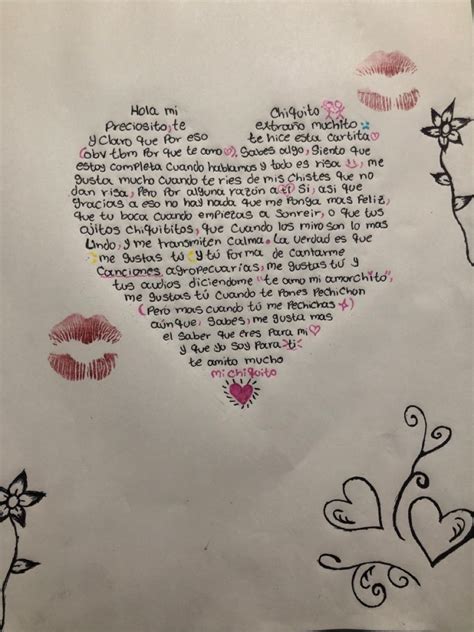 Hola mi Chiquito
Preciosito, te extraño muchito
y Claro que Por eso te hice esta Cartita
(obv tbm Por que te amo). Sabes algo, Siento que
estoy completa Cuando hablamos y todo es risa, me
gusta mucho Cuando te ries de mis Chistes que no
dan risa, Pero Por alguna razón a ti Si, asi que
gracias a eso no hay nada que me Ponga mas feliz,
que tu boca Cuando empiezas a Sonreir, o que tus
ojitos Chiquititos, que Cuando los miro son lo mas
Lindo, y me transmiten Calma. La verdad es que
me gustas tú y tú forma de Cantarme
Canciones agropecuarias, me gustas tú y
tus audios diciendome "te amo mi amorchito",
me gustas tú Cuando te pones Pechichon
(Pero mas cuando tú me Pechichas)
aúnque, Sabes, me gusta mas
el saber que eres Para mi
y que yo soy Para ti
te amito mucho
mi chiquito